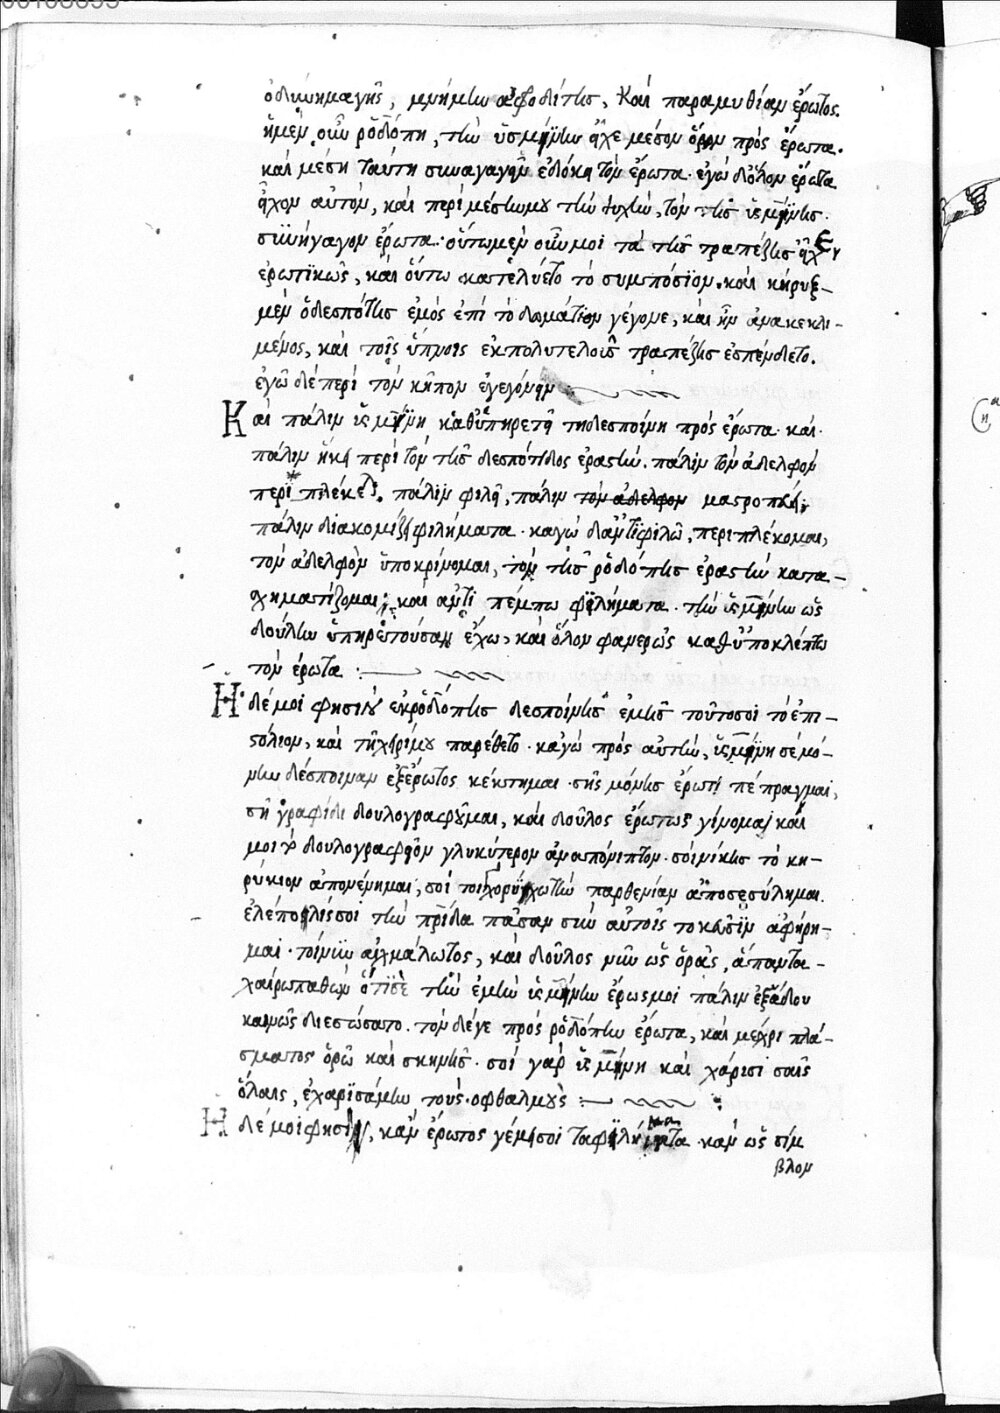 ὀδύνημα γῆς, μνήμην ἀφροδίτης, καὶ παραμυθίαν ἔρωτος.
ἡ μὲν οὖν ῥοδόπη, τὴν ὑσμίνην εἶχε μέσον ὅρον πρὸς ἔρωτα.
καὶ μέση ταύτη συναγαγεῖν ἐδόκει τὸν ἔρωτα. ἐγὼ δ' ὅλον ἔρωτα
εἶχον αὐτὸν, καὶ περὶ μέσην μου τὴν ψυχὴν, τὸν τῆς ὑσμίνης
συνήγαγον ἔρωτα. οὕτω μὲν οὖν μοι τὰ τῆς τραπέζης εἶχεν
ἐρωτικῶς, καὶ οὕτω κατελύετο τὸ συμπόσιον. καὶ κήρυξ
μὲν ὁ δεσπότης ἐμὸς ἐπὶ τὸ δωμάτιον γέγονε, καὶ ἦν ἀνακεκλι-
μένος, καὶ τοῖς ὕπνοις ἐκ πολυτελοῦς τραπέζης ἐσπένδετο.
ἐγὼ δὲ περὶ τὸν κῆπον ἐγεγόνειν
Καὶ πάλιν ὑσμίνη καθυπηρετεῖ τῇ δεσποίνῃ πρὸς ἔρωτα. καὶ
πάλιν ἥκει περὶ τὸν τῆς δεσπότιδος ἐραστὴν. πάλιν τὸν ἀδελφὸν
περιπλέκεται. πάλιν φιλεῖ, πάλιν τὸν ἀδελφὸν μαστροπεύει,
πάλιν διακομίζει φιλήματα. κἀγὼ δ' ἀντιφιλῶ, περιπλέκομαι,
τὸν ἀδελφὸν ὑποκρίνομαι, τὸν τῆς ῥοδόπης ἐραστὴν κατα-
σχηματίζομαι, καὶ ἀντιπέμπω φιλήματα. τὴν ὑσμίνην ὡς
δούλην ὑπηρετοῦσαν ἔχω, καὶ ὅλον φανερῶς καθυποκλέπτω
τὸν ἔρωτα
Ἡ δέ μοι φησὶν ἐκ ῥοδόπης δεσποίνης ἐμῆς τουτοσὶ τὸ ἐπι-
στόλιον, καὶ τῇ χειρί μου παρέθετο. κἀγὼ πρὸς αὐτὴν, ὑσμίνη σὲ μό-
νην δέσποιναν ἐξ ἔρωτος κέκτημαι. σῆς μόνης ἔρωτι πέπραγμαι,
σῇ γραφίδι δουλογραφοῦμαι, καὶ δοῦλος ἔρωτος γίνομαι καὶ
μοι τὸ δουλογραφεῖον γλυκύτερον ἀναπόνιπτον. σοὶ νίκης τὸ κη-
ρύκιον ἀπονέμημαι, σοὶ τοιχωρύχῳ τὴν παρθενίαν ἀποσεσύλημαι.
ἑλέπολίς σοι τὴν πατρίδα πᾶσαν σὺν αὐτοῖς τοκεῦσιν ἀφῄρη-
μαι. τοίνυν αἰχμάλωτος, καὶ δοῦλος νῦν ὡς ὁρᾷς, ἅπαντα
χαίρω παθὼν ὅτι σὲ τὴν ἐμὴν ὑσμίνην ἔρως μοι πάλιν ἐξ ᾅδου
καινῶς διεσώσατο. τὸν δέ γε πρὸς ῥοδόπην ἔρωτα, καὶ μέχρι πλά-
σματος ὁρῶ καὶ σκηνῆς. σοὶ γὰρ ὑσμίνη καὶ χάρισι σαῖς
ὅλαις, ἐχαρισάμην τοὺς ὀφθαλμούς
Ἡ δέ μοι φησὶν, κἂν ἔρωτος γέμῃ σοι τὰ φιλήματα. κἂν ὡς σίμ
βλον